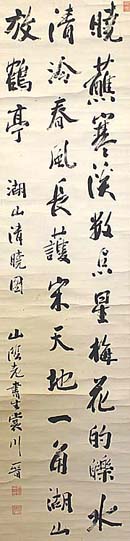 曉蘸寒溪数点星梅花的皪水
清冷春風長護宋天地一角湖山
放鶴亭 湖山清曉圖 山陰老書生裳川晉